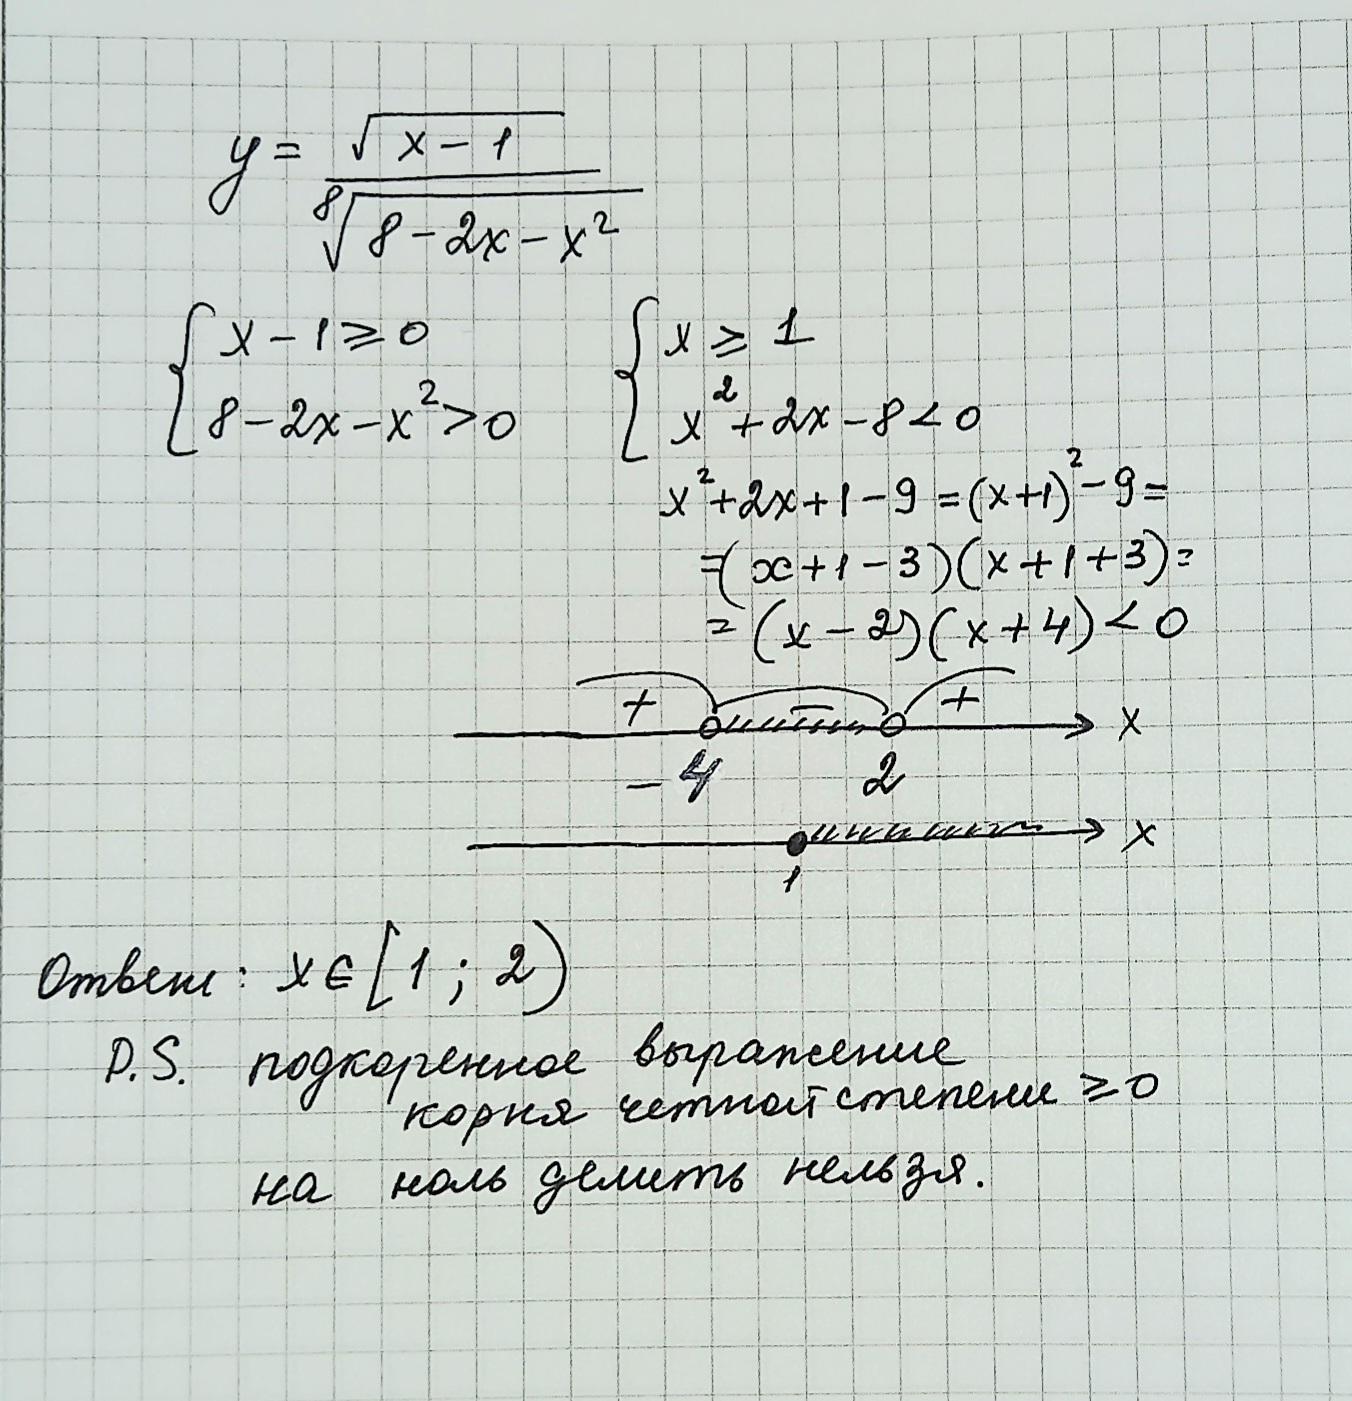 y = √(x - 1) / ⁸√(8 - 2x - x²)
{ x - 1 ⩾ 0 { x ⩾ 1
8 - 2x - x² > 0 x² + 2x - 8 < 0
x² + 2x + 1 - 9 = (x+1)² - 9 =
= (x + 1 - 3)(x + 1 + 3) =
= (x - 2)(x + 4) < 0
+ - + x
-4 2
x
1
Ответ: x ∈ [1 ; 2)
P.S. подкоренное выражение
корня четной степени ⩾ 0
на ноль делить нельзя.